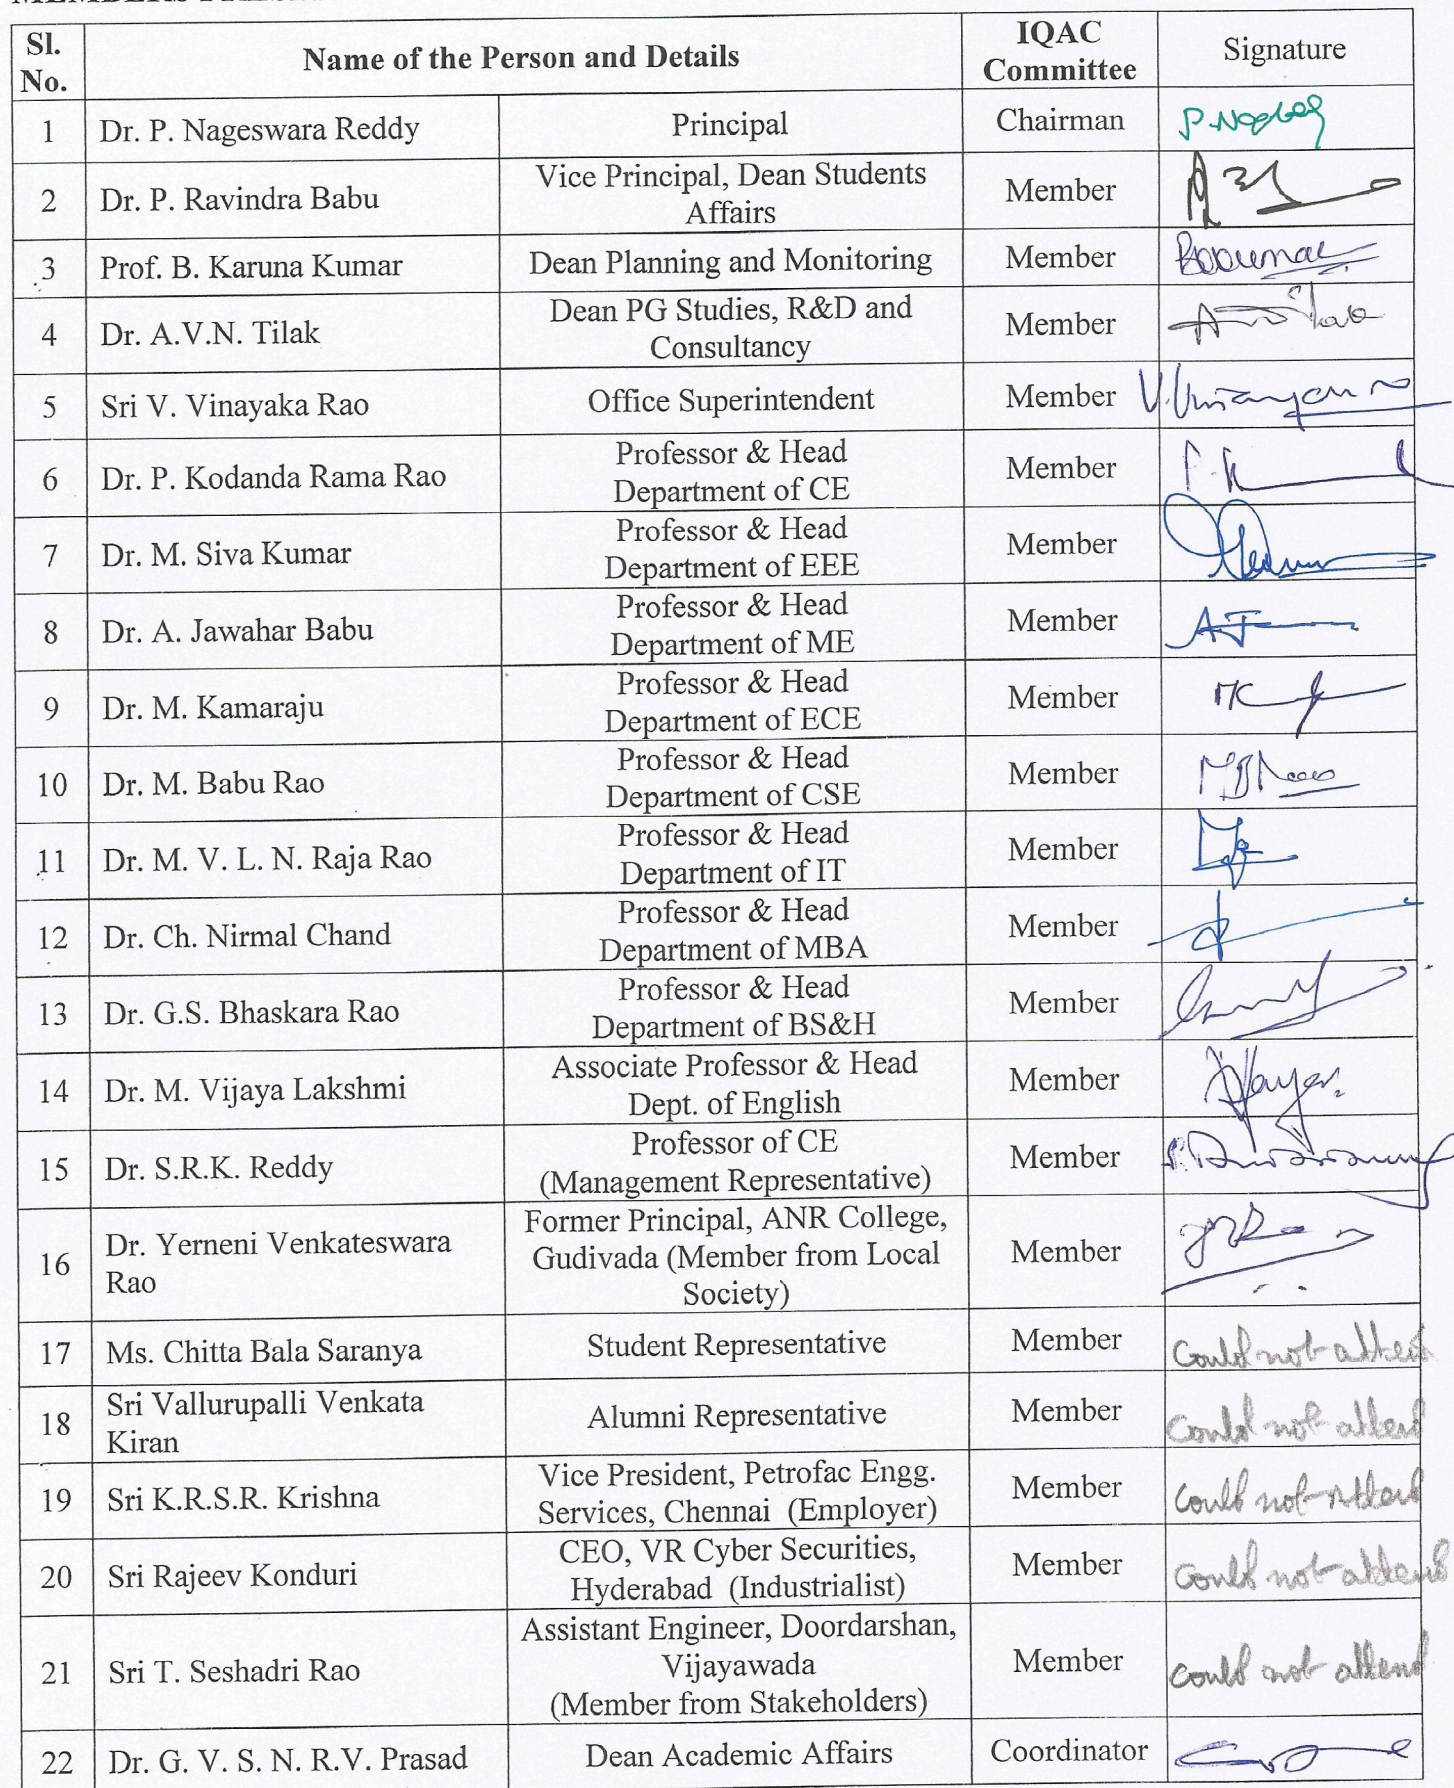 Sl. No.
Name of the Person and Details
IQAC Committee
Signature
1 Dr. P. Nageswara Reddy Principal Chairman
2 Dr. P. Ravindra Babu Vice Principal, Dean Students Affairs Member
3 Prof. B. Karuna Kumar Dean Planning and Monitoring Member
4 Dr. A.V.N. Tilak Dean PG Studies, R&D and Consultancy Member
5 Sri V. Vinayaka Rao Office Superintendent Member
6 Dr. P. Kodanda Rama Rao Professor & Head Department of CE Member
7 Dr. M. Siva Kumar Professor & Head Department of EEE Member
8 Dr. A. Jawahar Babu Professor & Head Department of ME Member
9 Dr. M. Kamaraju Professor & Head Department of ECE Member
10 Dr. M. Babu Rao Professor & Head Department of CSE Member
11 Dr. M. V. L. N. Raja Rao Professor & Head Department of IT Member
12 Dr. Ch. Nirmal Chand Professor & Head Department of MBA Member
13 Dr. G.S. Bhaskara Rao Professor & Head Department of BS&H Member
14 Dr. M. Vijaya Lakshmi Associate Professor & Head Dept. of English Member
15 Dr. S.R.K. Reddy Professor of CE (Management Representative) Member
16 Dr. Yerneni Venkateswara Rao Former Principal, ANR College, Gudivada (Member from Local Society) Member
17 Ms. Chitta Bala Saranya Student Representative Member Could not attend
18 Sri Vallurupalli Venkata Kiran Alumni Representative Member Could not attend
19 Sri K.R.S.R. Krishna Vice President, Petrofac Engg. Services, Chennai (Employer) Member Could not attend
20 Sri Rajeev Konduri CEO, VR Cyber Securities, Hyderabad (Industrialist) Member Could not attend
21 Sri T. Seshadri Rao Assistant Engineer, Doordarshan, Vijayawada (Member from Stakeholders) Member Could not attend
22 Dr. G. V. S. N. R.V. Prasad Dean Academic Affairs Coordinator